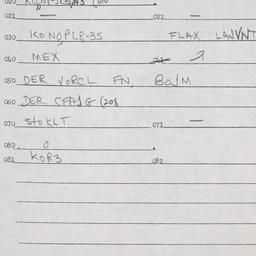 020
021 — 022 —
030 KONOPL8-35 FLAX LAJVNT
040 MEX
050 DER VORCL FN, BOJM
060 DER CFAJG (208
070 StOKLT 071 —
080 0
081 KOR3 082